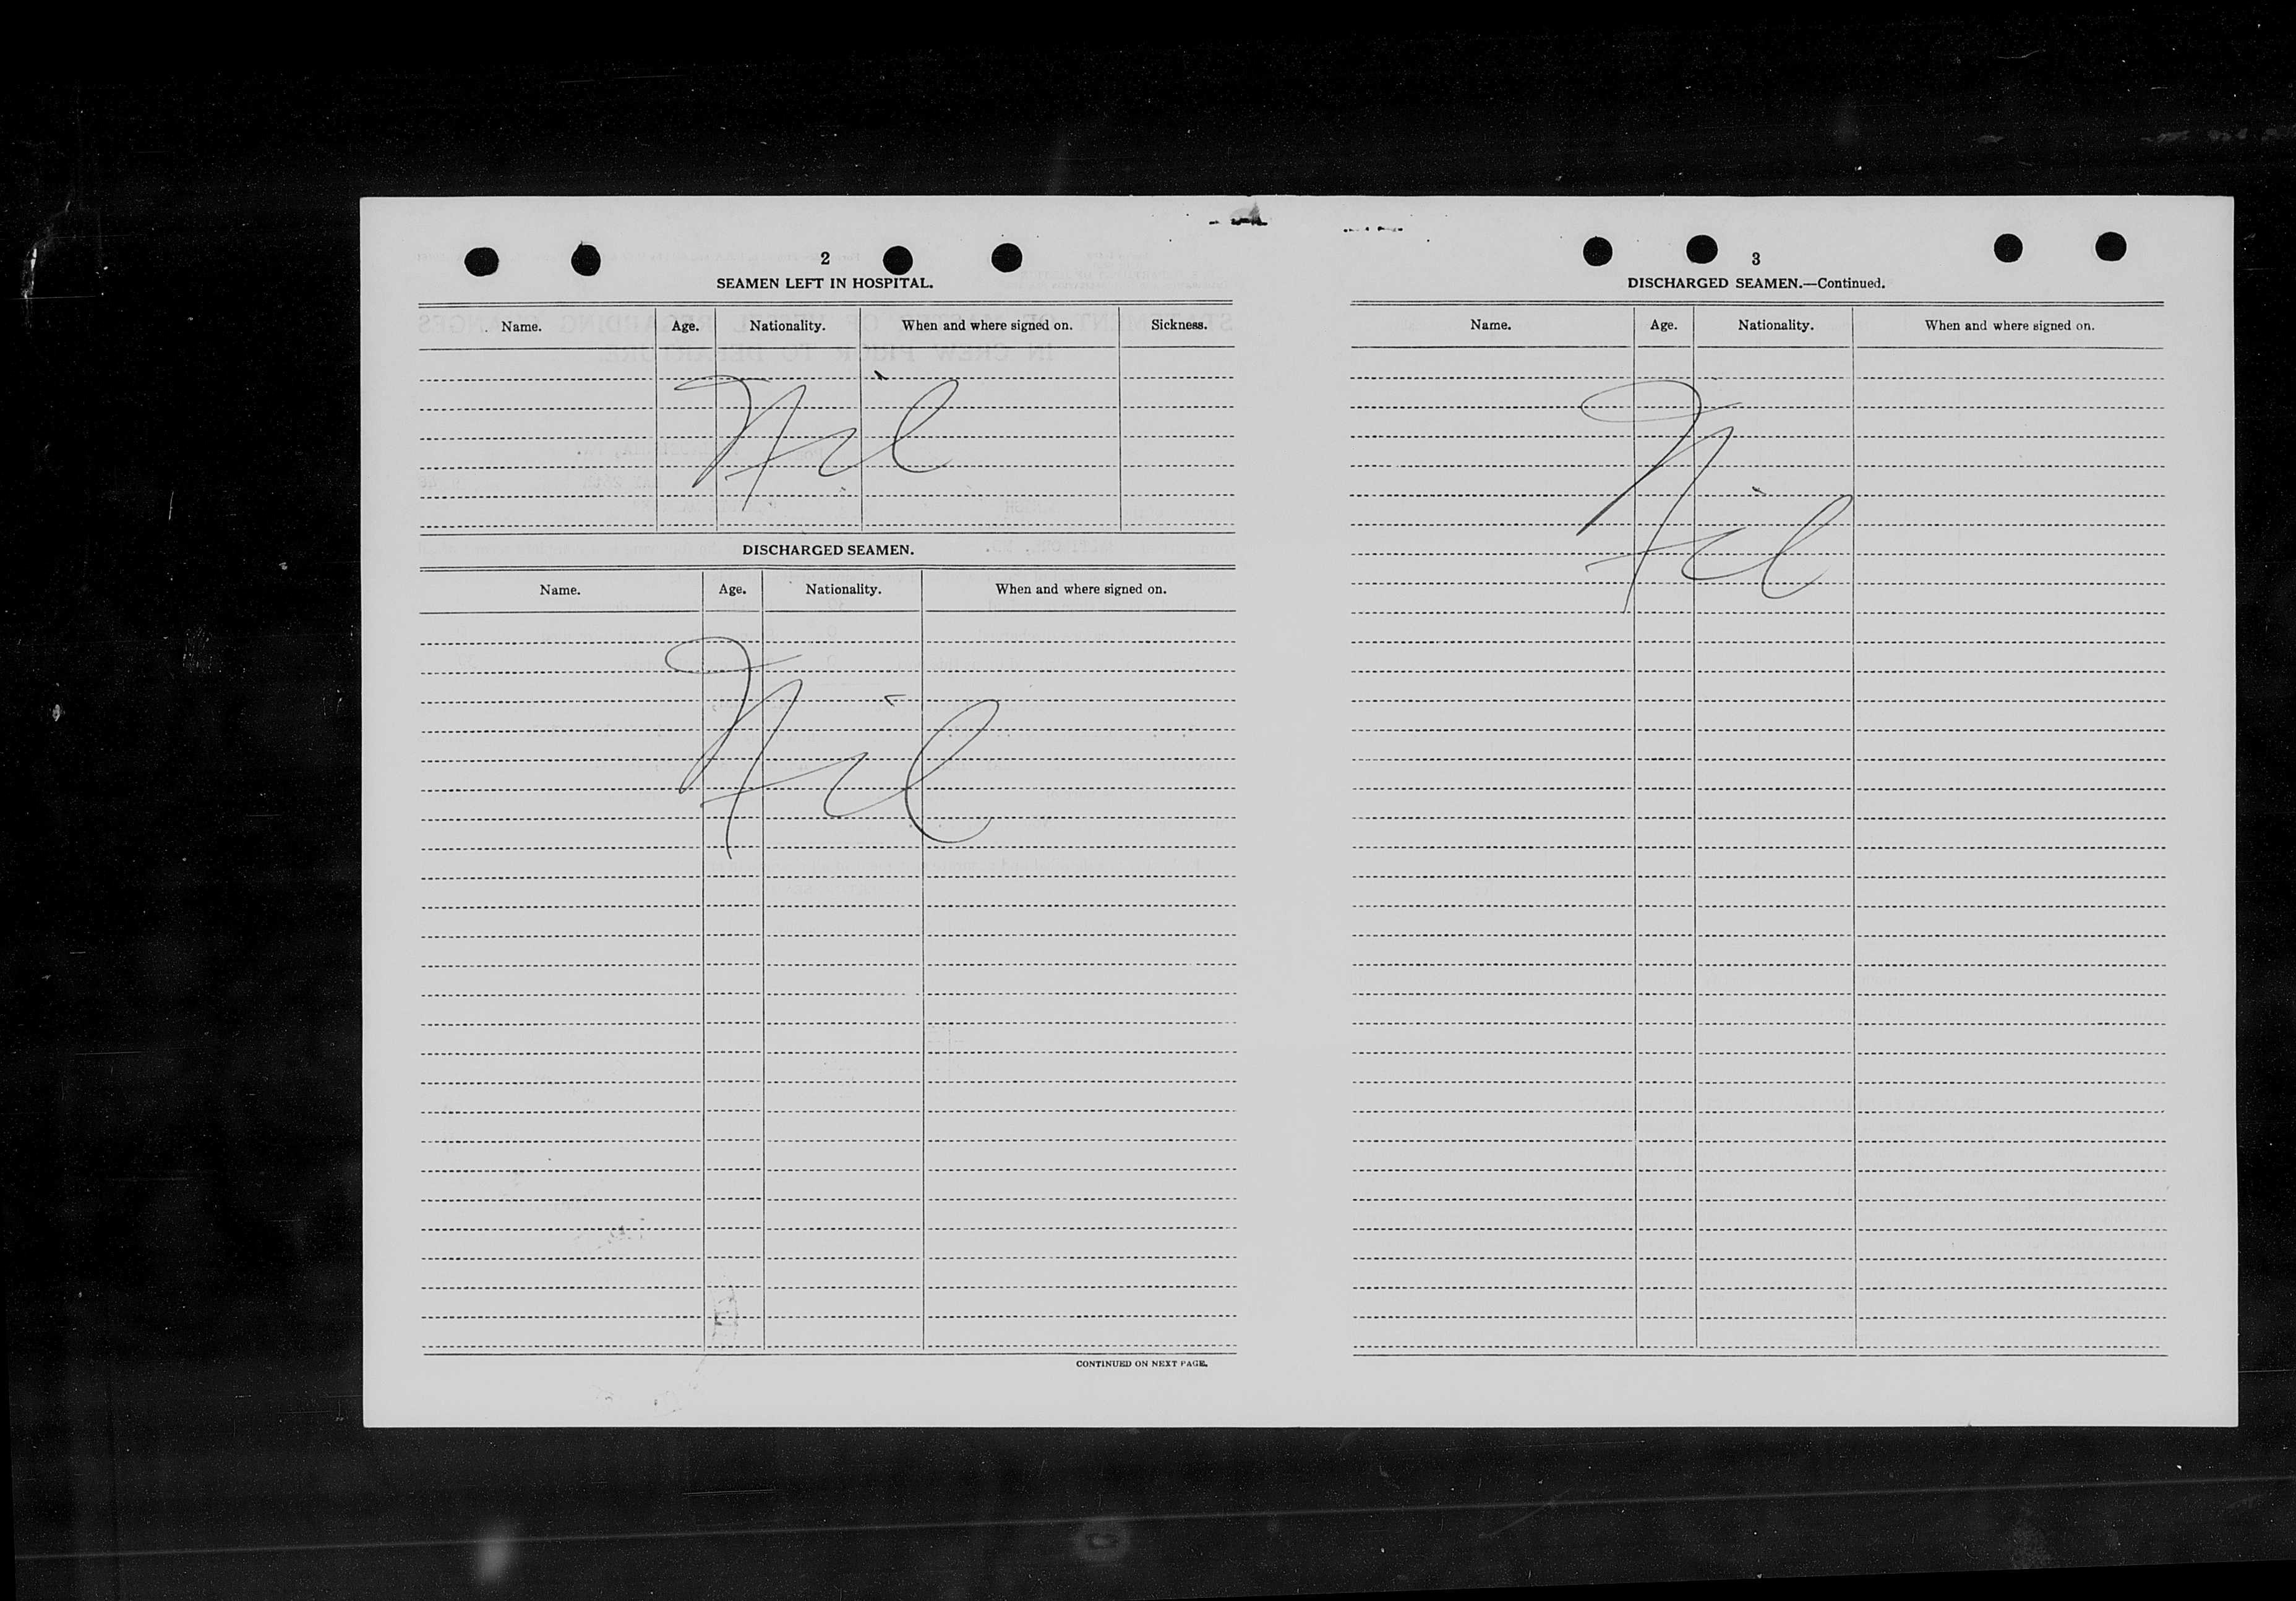 2
SEAMEN LEFT IN HOSPITAL.
Name. Age. Nationality. When and where signed on. Sickness.
Nil
DISCHARGED SEAMEN.
Name. Age. Nationality. When and where signed on.
Nil
CONTINUED ON NEXT PAGE.
3
DISCHARGED SEAMEN.—Continued.
Name. Age. Nationality. When and where signed on.
Nil